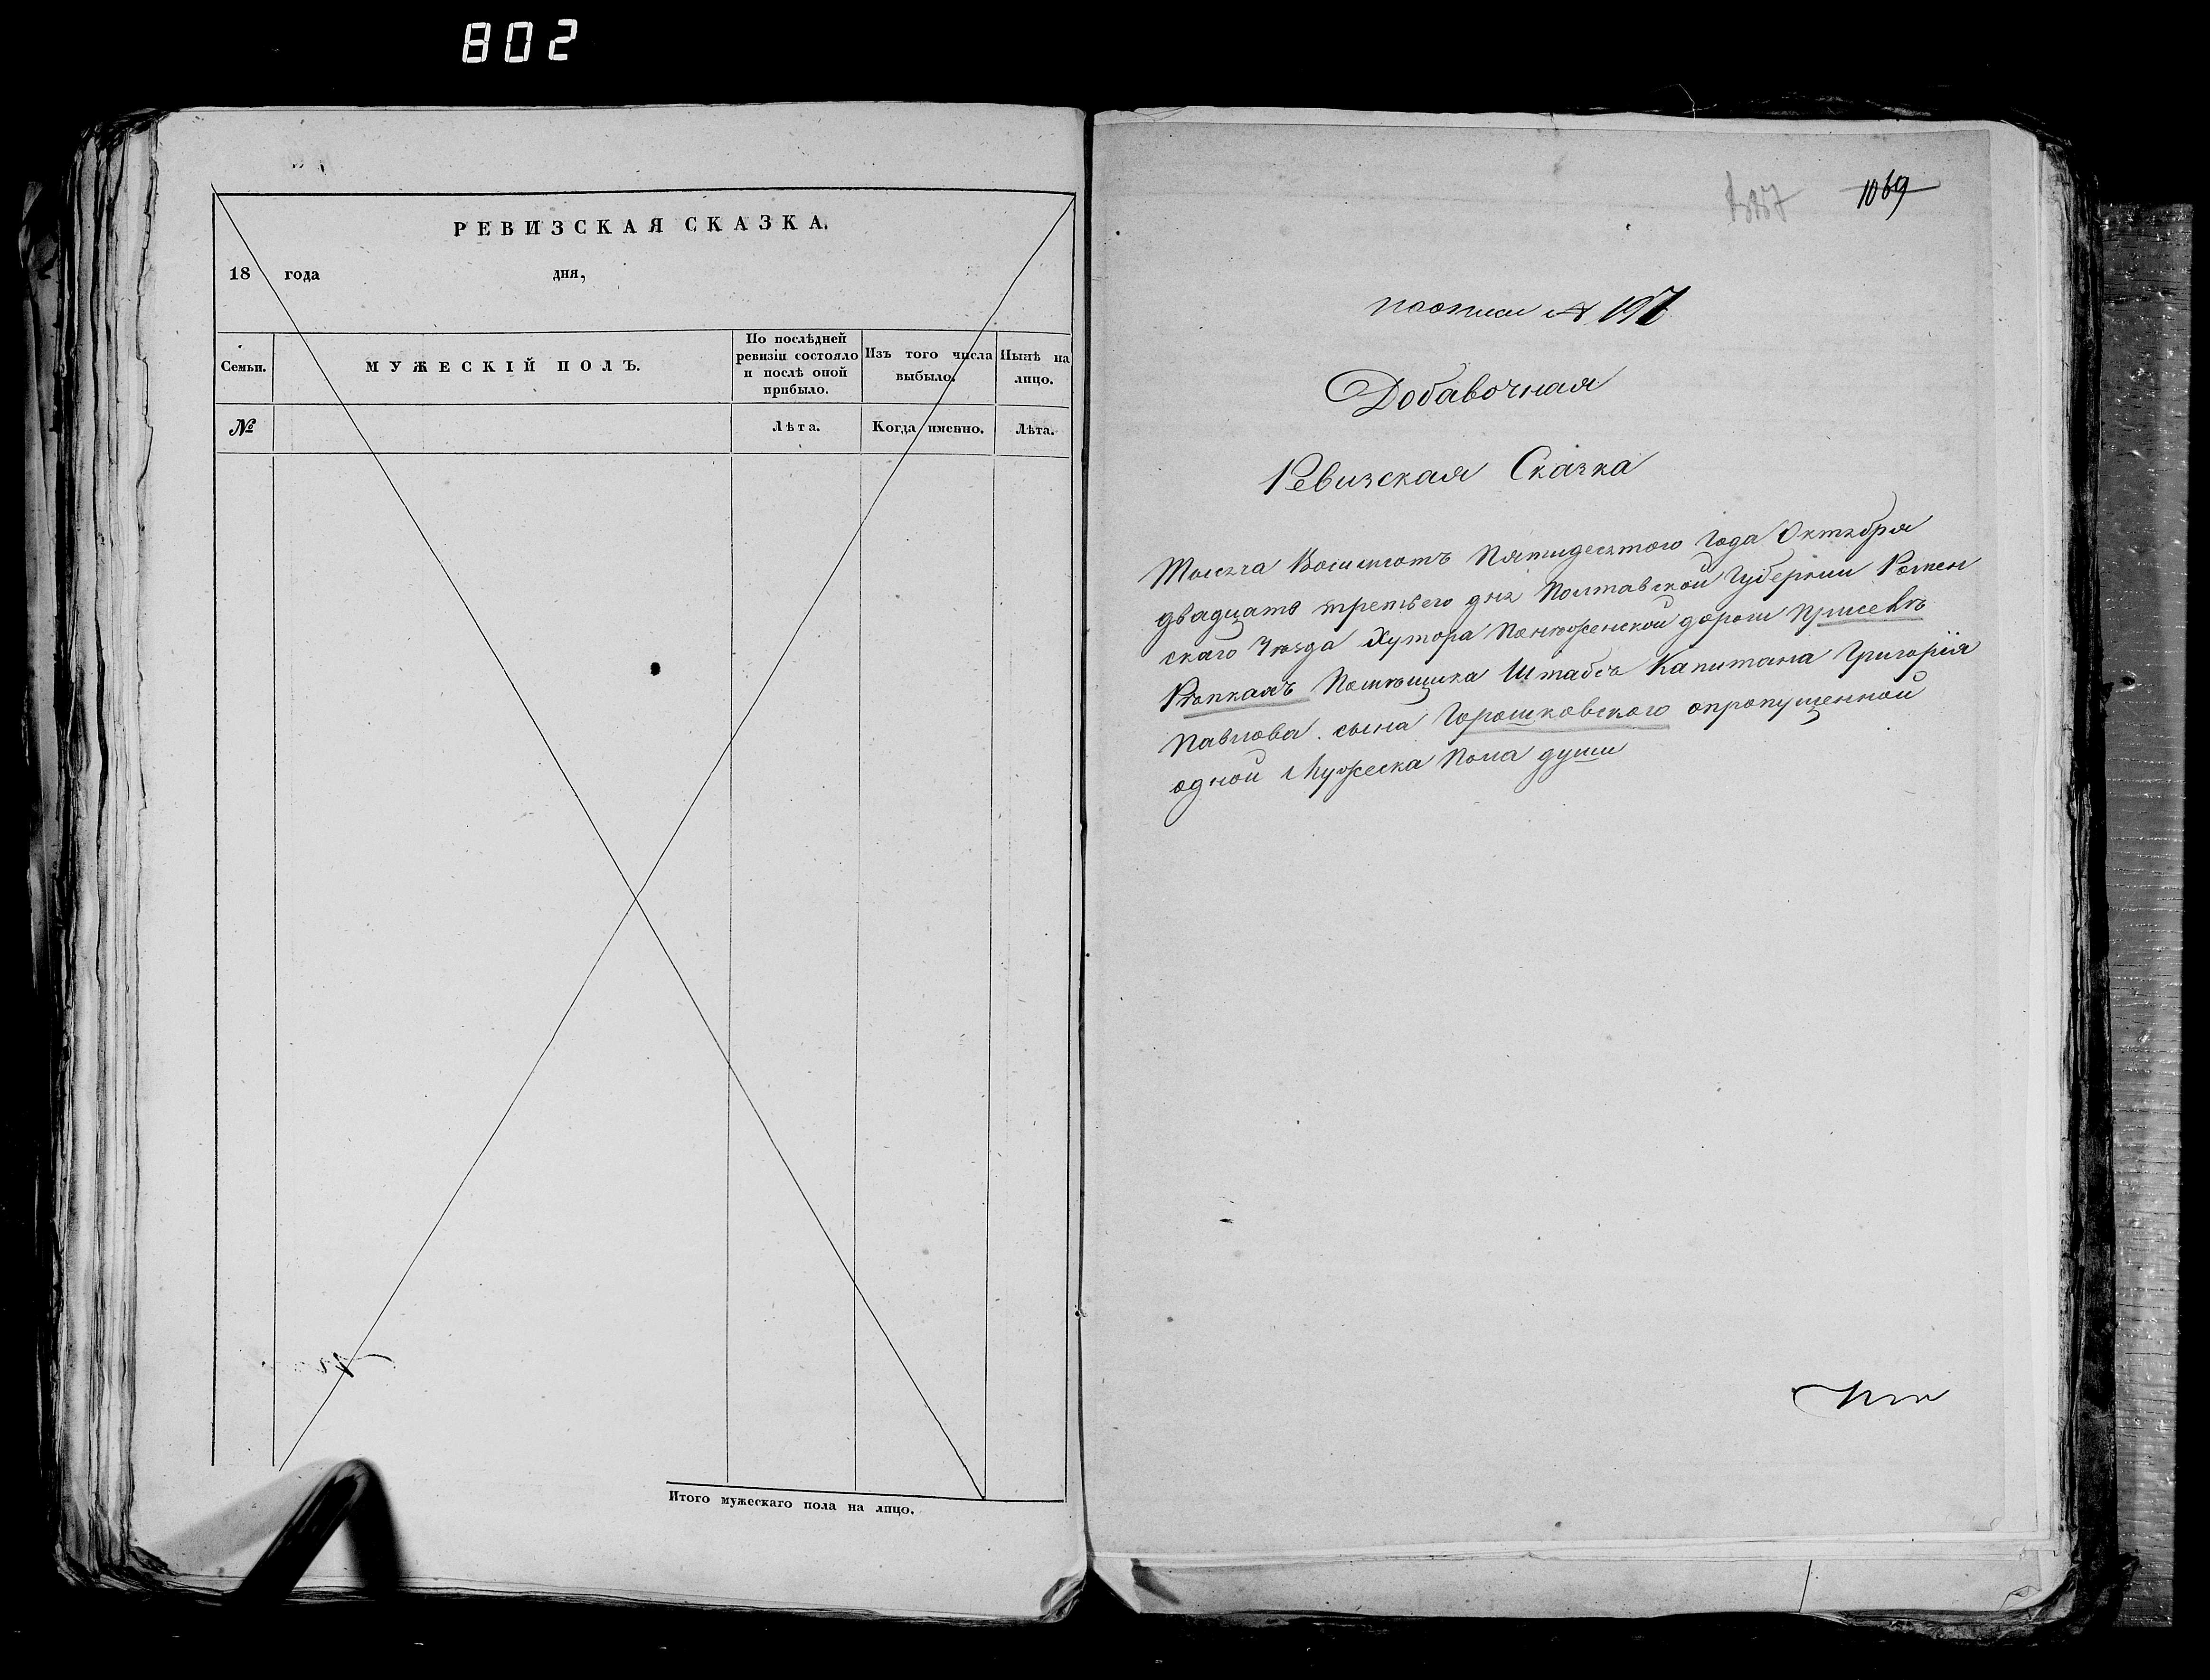 802
РЕВИЗСКАЯ СКАЗКА.
18 года дня,
Семьи.
МУЖЕСКІЙ ПОЛЪ.
По послѣдней ревизіи состояло и послѣ оной прибыло.
Изъ того числа выбыло.
Нынѣ на лицо.
№
Лѣта.
Когда именно.
Лѣта.
Итого мужескаго пола на лицо.
1069
поописи № 197
Добавочная
Ревизская Сказка
Тысяча Восимсотъ Пятидесятого Года Октября
двадцать третьего дня Полтавской Губернии Ромен
скаго Уѣзда Хутора дороги Присевкъ
Рѣпкахъ Помѣщика Штабсъ Капитана Григорія
Павлова сына Горошковского опропущенной
одной Мужеска Пола души